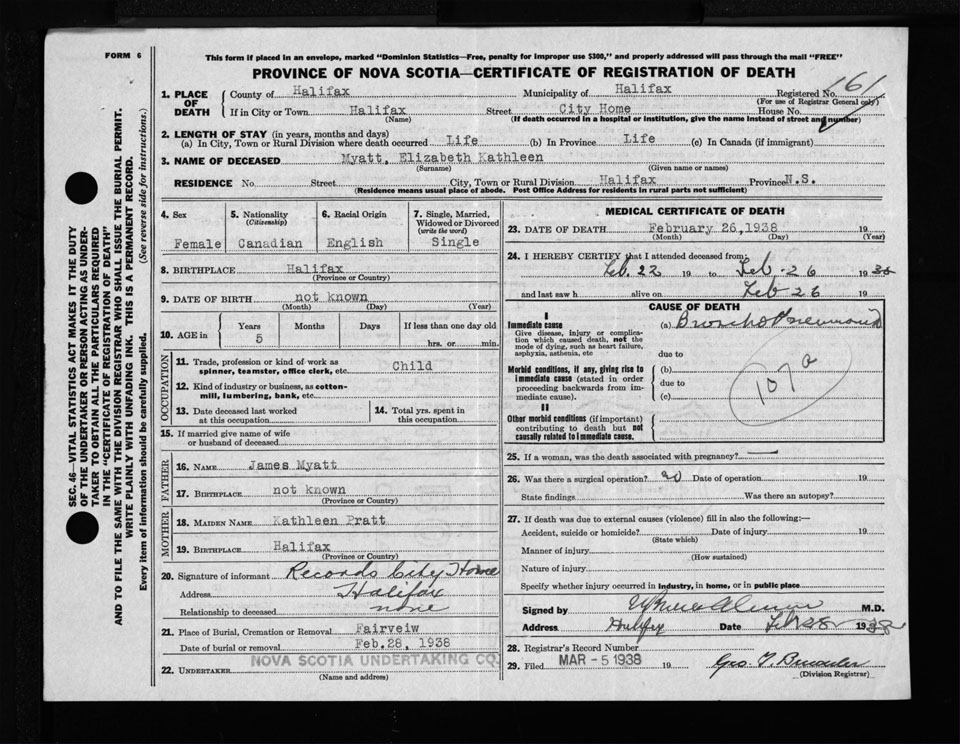 FORM 6
This form if placed in an envelope, marked "Dominion Statistics—Free, penalty for improper use $300," and properly addressed will pass through the mail "FREE"
PROVINCE OF NOVA SCOTIA—CERTIFICATE OF REGISTRATION OF DEATH
SEC. 46—VITAL STATISTICS ACT MAKES IT THE DUTY
OF THE UNDERTAKER OR PERSON ACTING AS UNDER-
TAKER TO OBTAIN ALL THE PARTICULARS REQUIRED
IN THE "CERTIFICATE OF REGISTRATION OF DEATH"
AND TO FILE THE SAME WITH THE DIVISION REGISTRAR WHO SHALL ISSUE THE BURIAL PERMIT.
WRITE PLAINLY WITH UNFADING INK. THIS IS A PERMANENT RECORD.
Every item of information should be carefully supplied. (See reverse side for instructions.)
1. PLACE OF DEATH
County of Halifax Municipality of Halifax Registered No. 161
(For use of Registrar General only)
If in City or Town Halifax Street City Home House No.
(Name) (If death occurred in a hospital or institution, give the name instead of street and number)
2. LENGTH OF STAY (in years, months and days)
(a) In City, Town or Rural Division where death occurred Life (b) In Province Life (c) In Canada (if immigrant)
3. NAME OF DECEASED Myatt, Elizabeth Kathleen
(Surname) (Given name or names)
RESIDENCE No. Street City, Town or Rural Division Halifax Province N.S.
(Residence means usual place of abode. Post Office Address for residents in rural parts not sufficient)
4. Sex Female
5. Nationality (Citizenship) Canadian
6. Racial Origin English
7. Single, Married, Widowed or Divorced (write the word) Single
8. BIRTHPLACE Halifax
(Province or Country)
9. DATE OF BIRTH not known
(Month) (Day) (Year)
10. AGE in Years 5 Months Days If less than one day old hrs. or min.
OCCUPATION
11. Trade, profession or kind of work as
spinner, teamster, office clerk, etc. Child
12. Kind of industry or business, as cotton-
mill, lumbering, bank, etc.
13. Date deceased last worked
at this occupation
14. Total yrs. spent in
this occupation
15. If married give name of wife
or husband of deceased
FATHER
16. NAME James Myatt
17. BIRTHPLACE not known
(Province or Country)
MOTHER
18. MAIDEN NAME Kathleen Pratt
19. BIRTHPLACE Halifax
(Province or Country)
20. Signature of informant Records City Home
Address Halifax
Relationship to deceased none
21. Place of Burial, Cremation or Removal Fairveiw
Date of burial or removal Feb. 28, 1938
22. UNDERTAKER NOVA SCOTIA UNDERTAKING CO.
(Name and address)
MEDICAL CERTIFICATE OF DEATH
23. DATE OF DEATH February 26, 1938 19
(Month) (Day) (Year)
24. I HEREBY CERTIFY that I attended deceased from
Feb. 22 19 to Feb - 26 1938
and last saw h alive on Feb 26 19
CAUSE OF DEATH
I
Immediate cause (a) Broncho Pneumonia
Give disease, injury or complica-
tion which caused death, not the
mode of dying, such as heart failure,
asphyxia, asthenia, etc
due to
Morbid conditions, if any, giving rise to
immediate cause (stated in order
proceeding backwards from im-
mediate cause).
(b)
due to
(c)
107a
II
Other morbid conditions (if important)
contributing to death but not
causally related to immediate cause.
25. If a woman, was the death associated with pregnancy? —
26. Was there a surgical operation? no Date of operation 19
State findings Was there an autopsy?
27. If death was due to external causes (violence) fill in also the following:—
Accident, suicide or homicide? Date of injury 19
(State which)
Manner of injury
(How sustained)
Nature of injury
Specify whether injury occurred in industry, in home, or in public place
Signed by M.D.
Address Halifax Date Feb 28 1938
28. Registrar's Record Number
29. Filed MAR - 5 1938 19 Geo.
(Division Registrar)